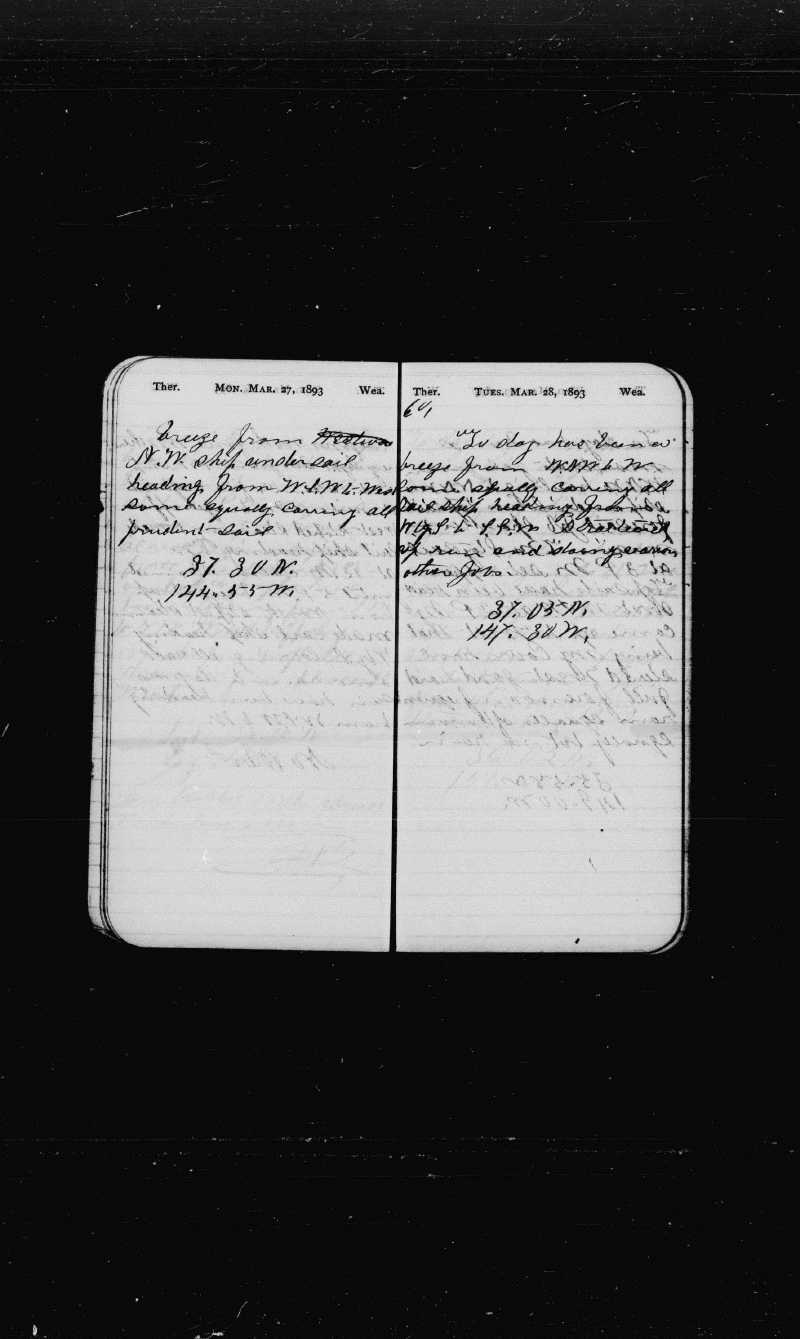 Ther. MON. MAR. 27, 1893 Wea.
breeze from
N.W. ship under sail
heading from W.S.W. to
some squally carrying all
prudent sail
37. 30 N.
144. 55 W.
Ther. TUES. MAR. 28, 1893 Wea.
To day has been a
breeze from W.N.W. to W.
some squally carring all
sail ship heading from
W by S to
up run and doing various
other Jobs.
37. 05 N.
147. 30 W.